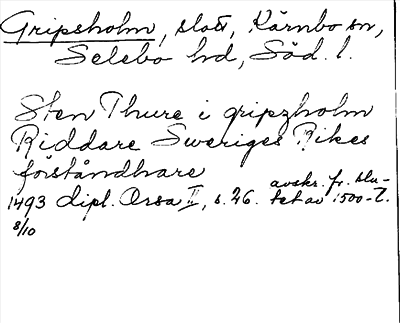 Gripsholm, slott, Kärnbo sn,
Selebo hd, Söd. l.
Sten Thure i gripzholm
Riddare Sweriges Rikes
förståndhare
1493 dipl. Orsa II, s. 26. avskr. fr. slu-
8/10 tet av 1500-t.